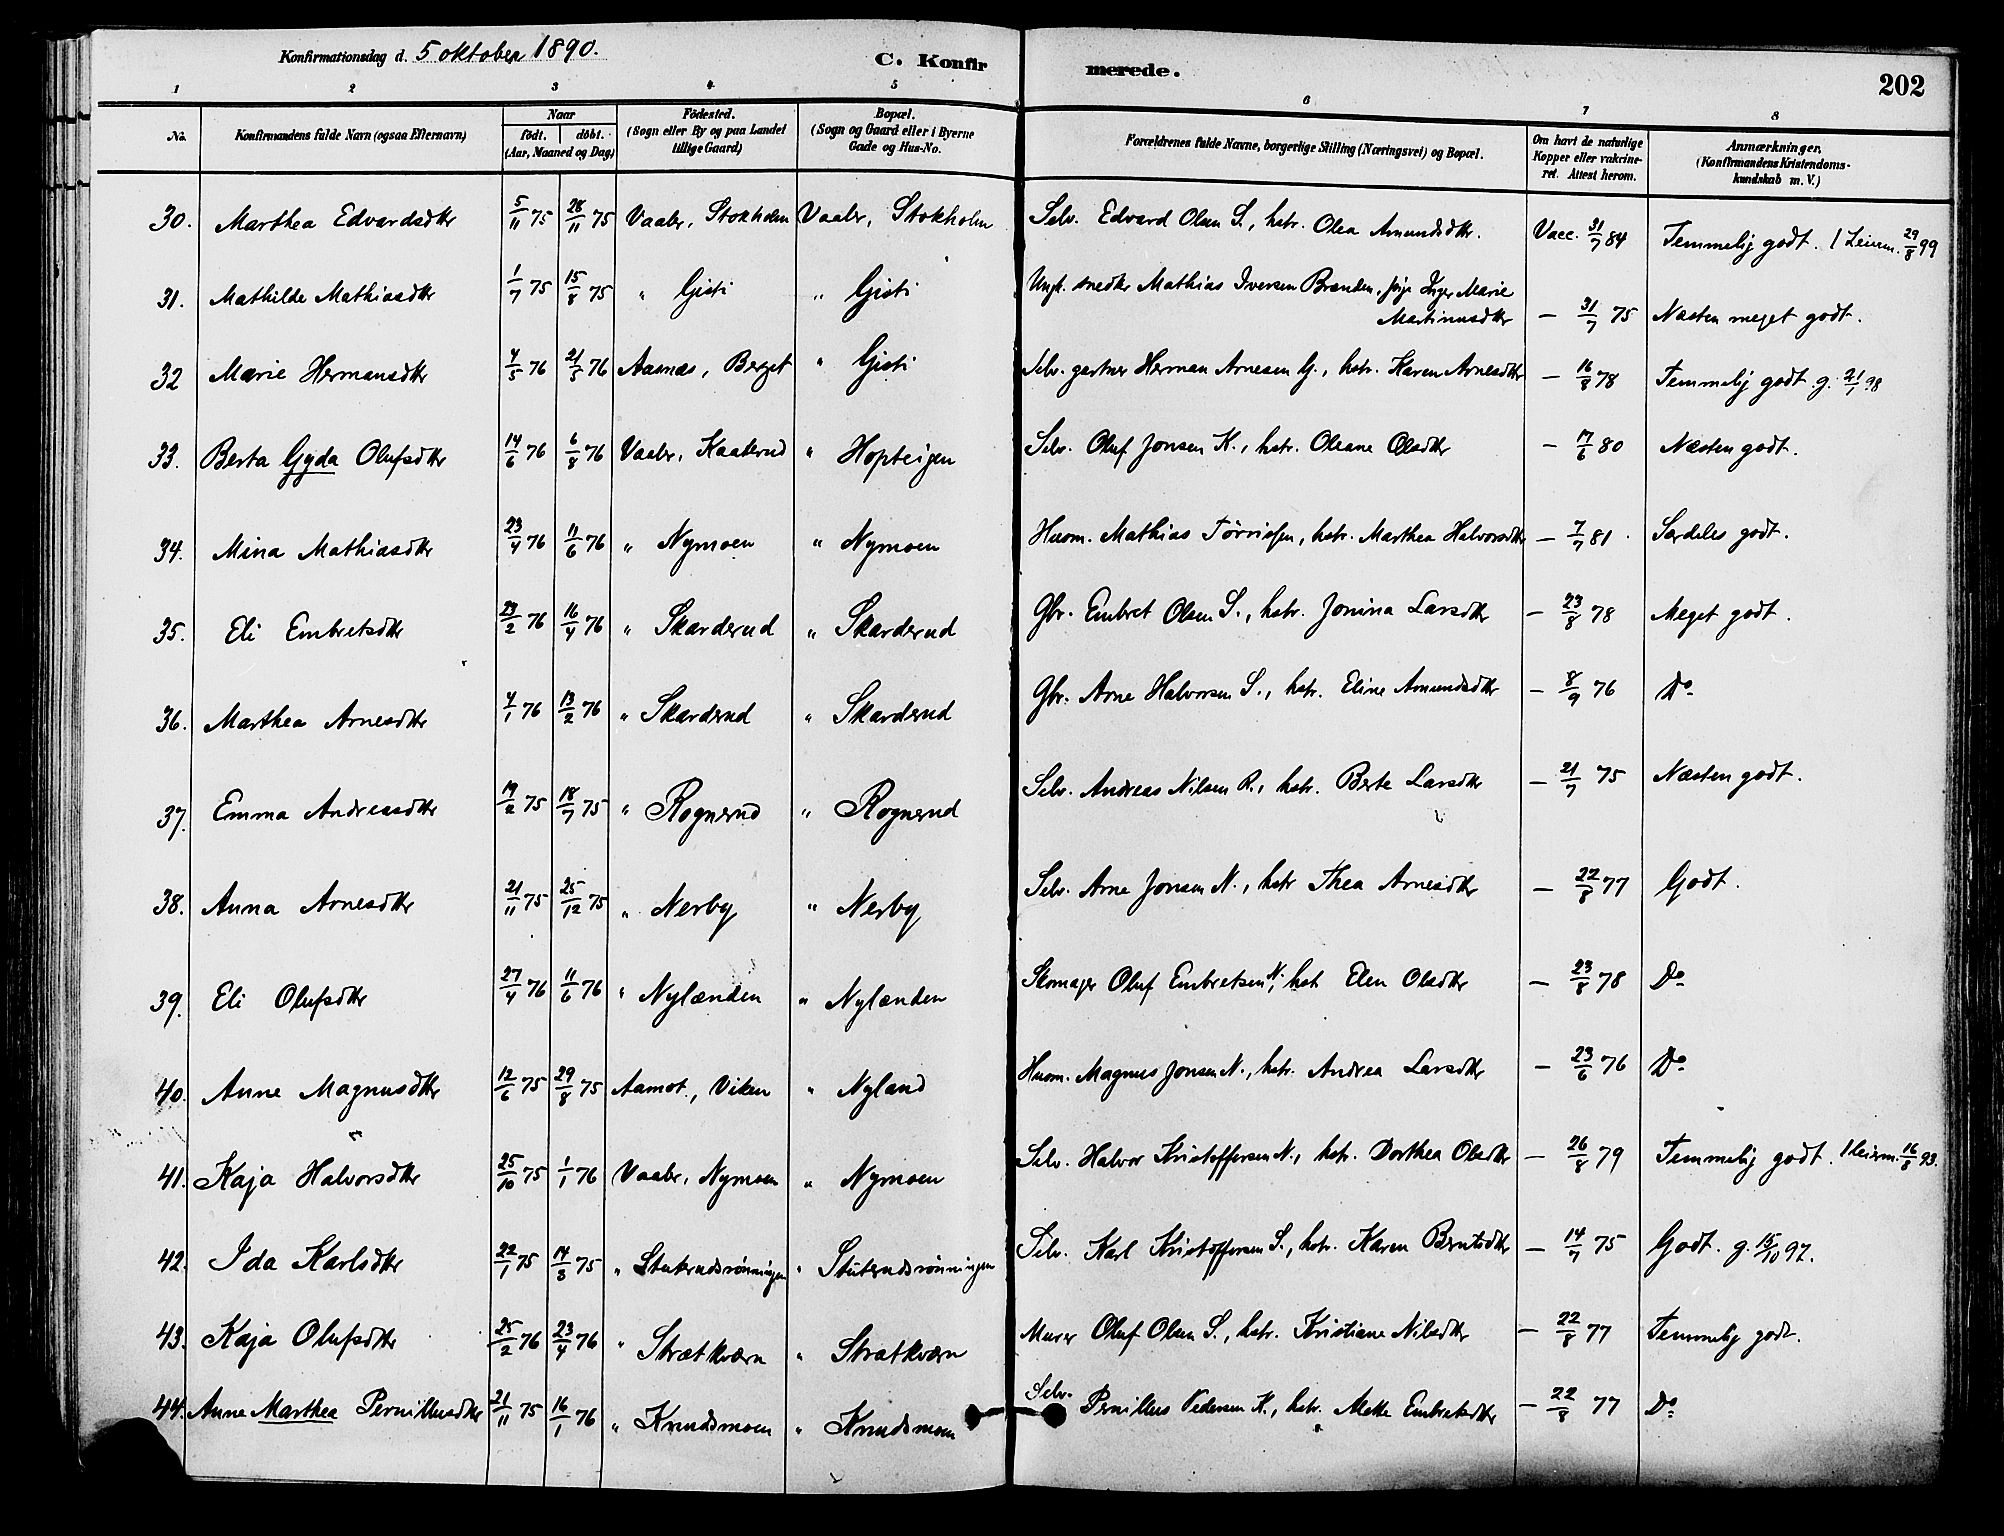 Konfirmationsdag d. 5 oktober 1890.
C. Konfirmerede.
202
1 2 3 4 5 6 7 8
No. Konfirmandens fulde Navn (ogsaa Efternavn) Naar födt. döbt. (Aar, Maaned og Dag) Födested. (Sogn eller By og paa Landet tillige Gaard) Bopæl. (Sogn og Gaard eller i Byerne Gade og Hus-No. Forældrenes fulde Navne, borgerlige Stilling (Næringsvei) og Bopæl. Om havt de naturlige Kopper eller vakcineret. Attest herom. Anmærkninger. (Konfirmandens Kristendomskundskab m. V.)
30. Marthea Edvardsdtr 5/11 75 28/11 75 Vaaler, Stokholm Vaaler, Stokholm Selv. Edvard Olsen S., hstr. Olea Amundsdtr. Vacc. 31/7 84 Temmelig godt. 1 Leierm. 29/8 99
31. Mathilde Mathiasdtr 1/7 75 15/8 75 " Gjsti " Gjsti Ungk. snedker Mathias Iversen Branden, pige Inger Marie
Martinusdtr — 31/7 75 Næsten meget godt.
32 Marie Hermansdtr 4/5 76 21/5 76 Aasnæs, Berget " Gjsti Selv. gartner Herman Arnesen G., hstr. Karen Arnesdtr — 16/8 78 Temmelig godt. g. 21/1 98
33. Berta Gyda Olufsdtr 14/6 76 6/8 76 Vaaler, Kaaterud " Hopteigen Selv. Oluf Jonsen K., hstr. Oleane Olsdtr — 17/6 80 Næsten godt.
34. Mina Mathiasdtr 23/4 76 11/6 76 " Nymoen " Nymoen Husm. Mathias Törrissen, hstr. Marthea Halvorsdtr — 7/7 81. Særdeles godt.
35. Eli Embretsdtr 23/2 76 16/4 76 " Skarderud " Skarderud Gbr. Embret Olsen S., hstr. Jonina Larsdtr — 23/8 78 Meget godt.
36. Marthea Arnesdtr 4/1 76 13/2 76 " Skarderud " Skarderud Gbr. Arne Halvorsen S., hstr. Eline Amundsdtr — 8/9 76 Do
37. Emma Andreasdtr 19/2 75 18/7 75 " Rognerud " Rognerud Selv. Andreas Nilsen R., hstr. Berte Larsdtr — 21/7 75 Næsten godt.
38. Anna Arnesdtr 21/11 75 25/12 75 " Nerby " Nerby Selv. Arne Jonsen N., hstr Thea Arnesdtr — 22/8 77 Godt.
39. Eli Olufsdtr 27/4 76 11/6 76 " Nylænden " Nylænden Skomager Oluf Embretsen N., hst Elen Olsdtr — 23/8 78 Do
40. Anne Magnusdtr 12/6 75 29/8 75 Aamot, Viken " Nyland Husm. Magnus Jonsen N., hstr. Andrea Larsdtr — 23/6 76 Do
41. Kaja Halvorsdtr 25/10 75 1/1 76 Vaaler, Nymoen " Nymoen Selv. Halvor Kristoffersen N., hstr. Dorthea Olsdtr — 26/8 79 Temmelig godt. 1 leierm. 16/8 93.
42. Ida Karlsdtr 22/1 75 14/3 75 " Stuterudsrönningen " Stuterudsrönningen Selv. Karl Kristoffersen S., hstr. Karen Berntsdtr — 14/7 75 Godt. g. 15/10 97.
43. Kaja Olufsdtr 25/2 76 23/4 76 " Strætkværn " Strætkværn Murer Oluf Olsen S., hstr. Kristiane Nilsdtr — 22/8 77 Temmelig godt.
44. Anne Marthea Pernillusdtr 21/11 75 16/1 76 " Knudsmoen " Knudsmoen Selv. Pernillus Pedersen K., hstr. Mette Embretsdtr — 22/8 77 Do